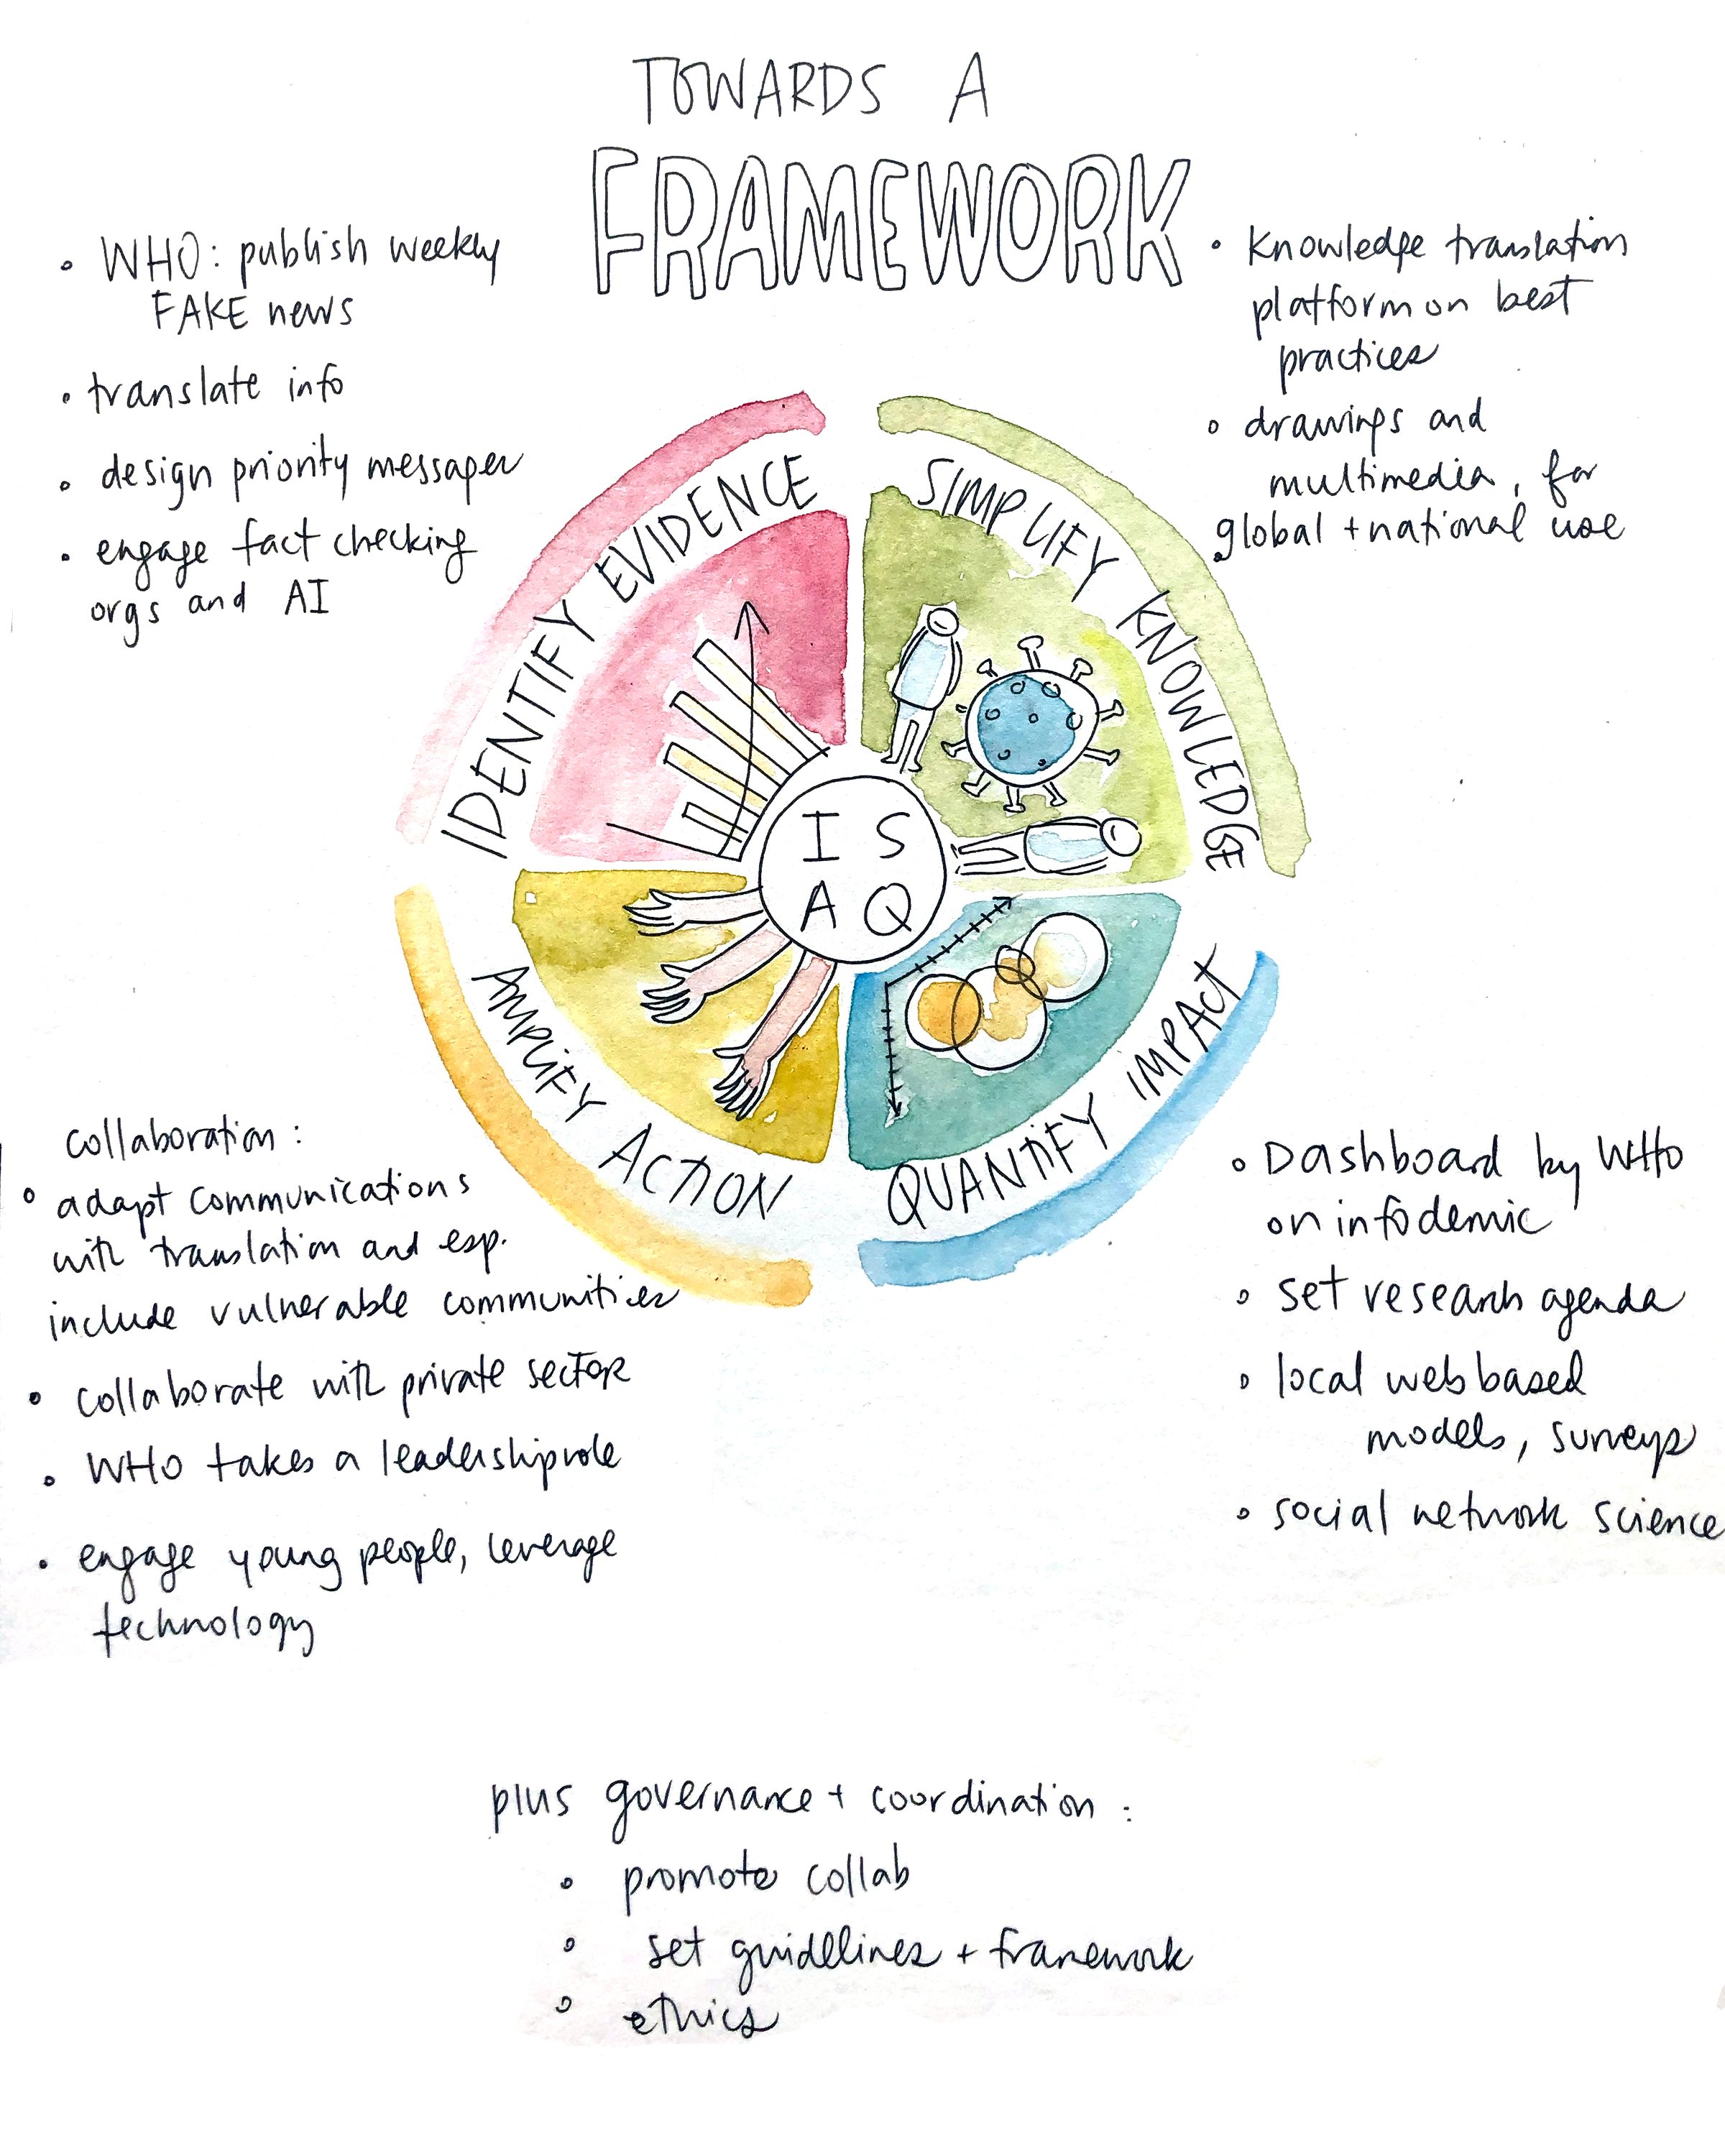 TOWARDS A
FRAMEWORK
• WHO: publish weekly
FAKE news
• translate info
• design priority messages
• engage fact checking
orgs and AI
• Knowledge translation
platform on best
practices
• drawings and
multimedia, for
global + national use
IDENTIFY EVIDENCE
SIMPLIFY KNOWLEDGE
I S
A Q
AMPLIFY ACTION
QUANTIFY IMPACT
collaboration:
• adapt communications
with translation and esp.
include vulnerable communities
• collaborate with private sector
• WHO takes a leadership role
• engage young people, leverage
technology
• Dashboard by WHO
on infodemic
• set research agenda
• local web based
models, surveys
• social network science
plus governance + coordination:
• promote collab
• set guidelines + framework
• ethics